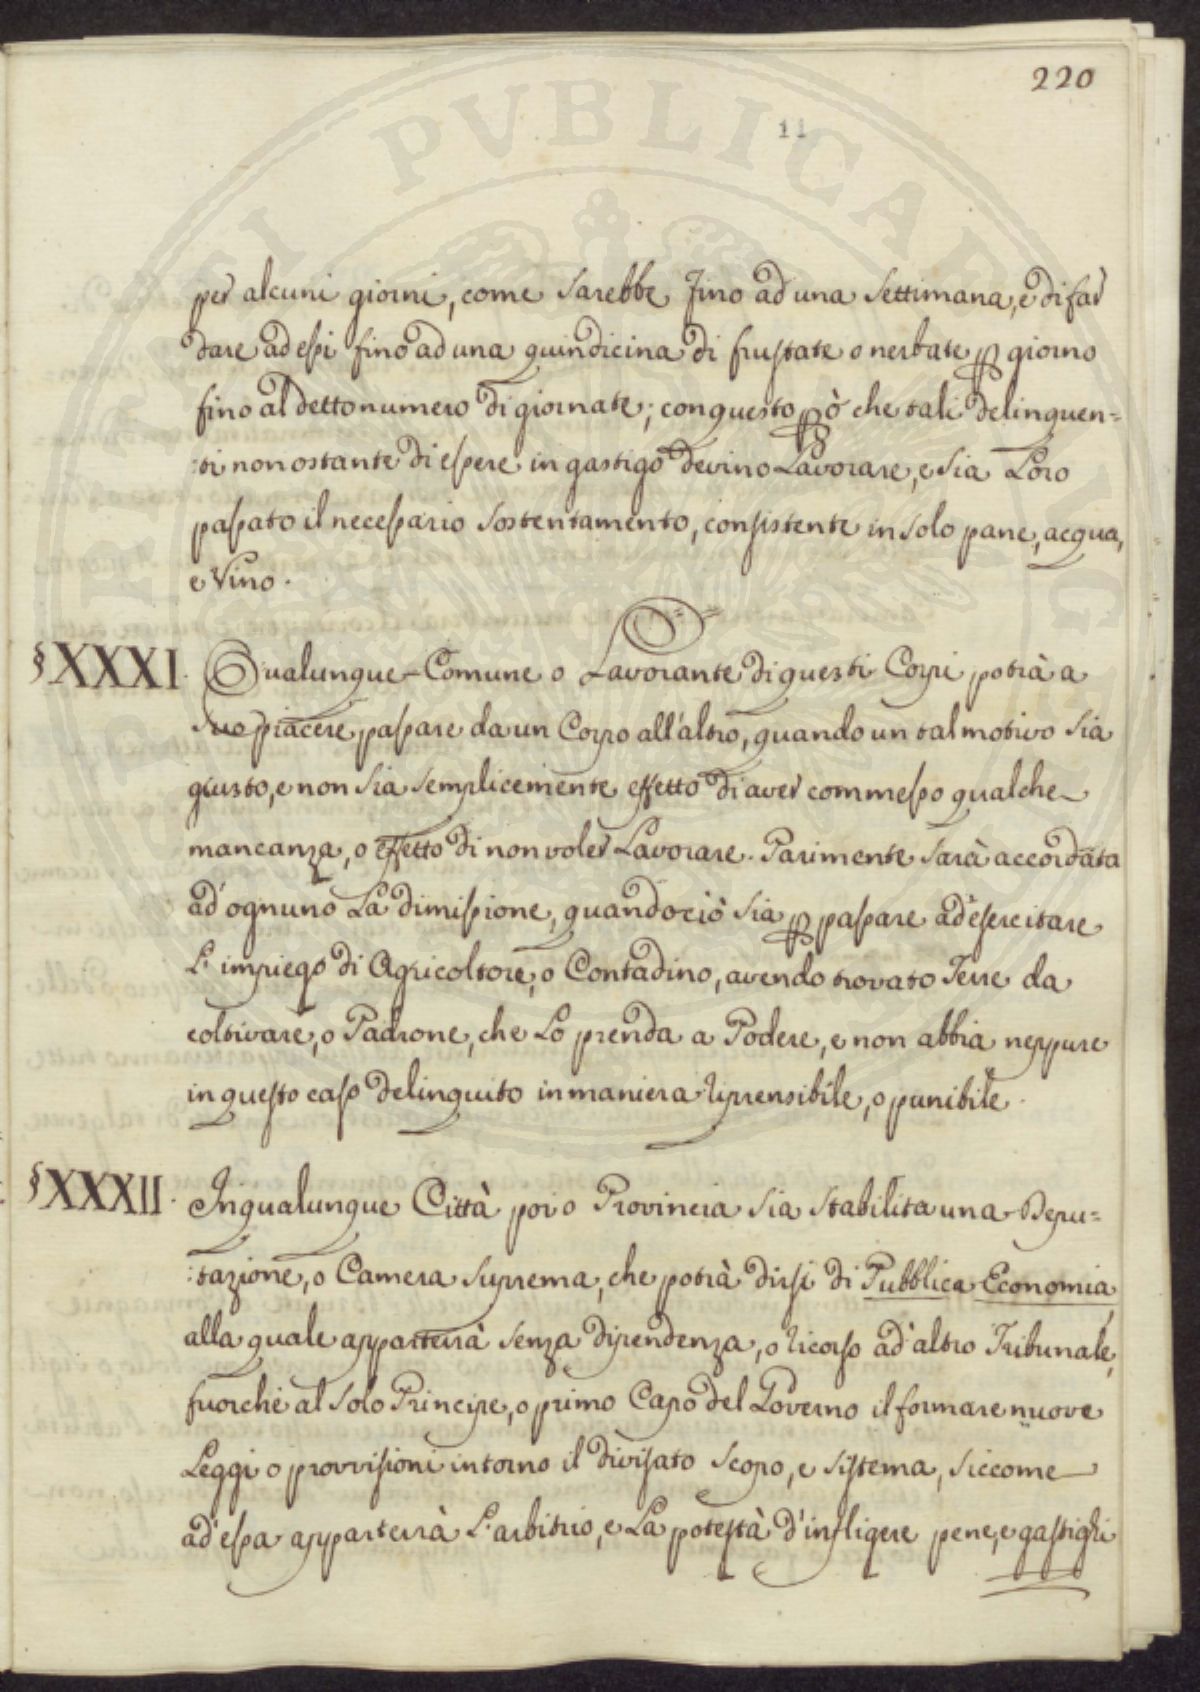 220
11
per alcuni giorni, come sarebbe fino ad una settimana, e di far
dare ad essi fino ad una quindicina di frustate o nerbate ꝑ giorno
fino al detto numero di giornate; con questo ꝑò che tali delinquen=
:ti non ostante di essere in gastigo devino Lavorare, e sia Loro
passato il necessario sostentamento, consistente in solo pane, acqua,
e Vino.
§XXXI. Qualunque Comune o Lavorante di questi Corpi potrà a
suo piacere passare da un Corpo all'altro, quando un tal motivo sia
giusto, e non sia semplicemente effetto di aver commesso qualche
mancanza, o effetto di non voler Lavorare. Parimente sarà accordata
ad'ognuno La dimissione, quando ciò sia ꝑ passare ad'esercitare
L'impiego di Agricoltore, o Contadino, avendo trovato Terre da
coltivare, o Padrone, che Lo prenda a Podere, e non abbia neppure
in questo caso delinquito in maniera riprensibile, o punibile.
§XXXII. In qualunque Città poi o Provincia sia stabilita una Depu=
:tazione, o Camera suprema, che potrà dirsi di Pubblica Economia
alla quale apparterrà senza dipendenza, o ricorso ad'altro Tribunale,
fuorchè al solo Principe, o primo Capo del Governo il formare nuove
Leggi o provvisioni intorno il divisato scopo, e sistema, siccome
ad'essa apparterrà L'arbitrio, e La potestà d'infligere pene, e gastighi
PIRITI PVBLICAE VTILITATI